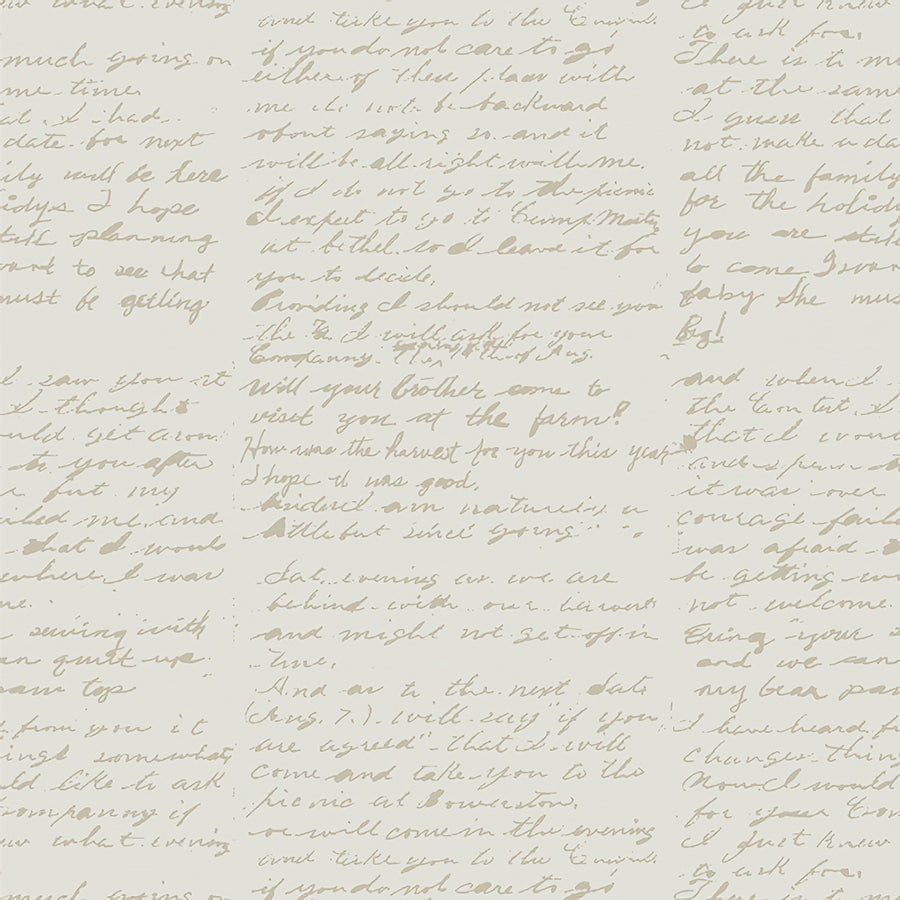 much going on
me time.
I had
date for next
ily will be here
idys I hope
still planning
ward to see that
must be getling
I saw you at
I thought
uld get aroun
to you after
but my
ailed me, and
that I would
where I was
me.
sewing with
an quilt up
pam top
from you it
ings somewhat
uld like to ask
companny if
what evening
much going on
and take you to the
if you do not care to go
either of these places with
me do not be backward
about saying so and it
will be all right with me.
if I do not go to the picnic
I expect to go to Camp Meeting
at bethel. so I leave it for
you to decide.
Providing I should not see you
the I will ask for your
Companny. The of Aug.
Will your brother come to
visit you at the farm?
How was the harvest for you this year
I hope it was good.
am naturely a
little but since going
Sat. evening as we are
behind with our harvest
and might not get off in
time.
And as to the next date
(Aug. 7.) will say "if you
are agreed" that I will
come and take you to the
picnic at Bowerston,
or will come in the evening
and take you to the
if you do not care to go
I just knew
to ask for.
There is to mu
at the same
I guess that
not make a da
all the family
for the holidy
you are still
to come I swar
baby She mus
Big!
and when I
the Contest, I
that I woul
and
it was over
courage faile
was afraid
be getting
not welcome.
Bring your s
and we can
my bear pam
I have heard fr
changes thing
Now I would
for your Com
I just knew
to ask for.
There is to mu